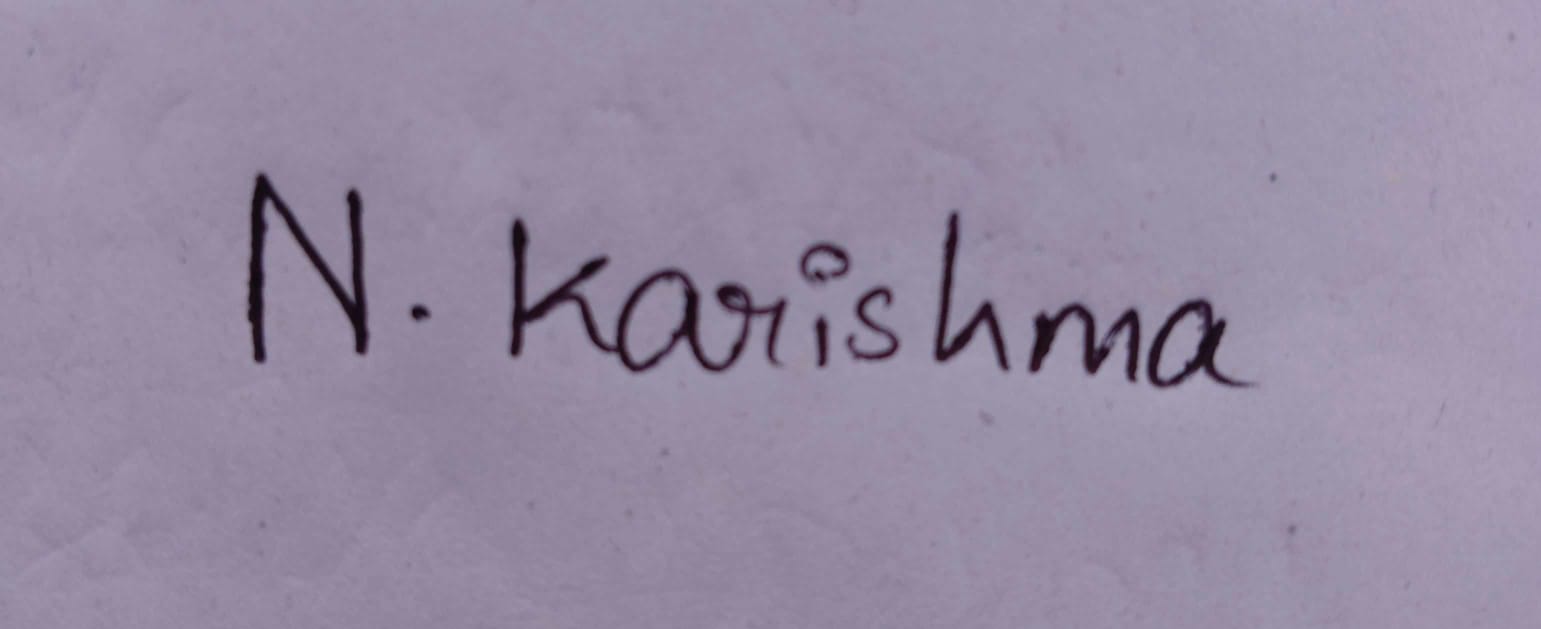 N. Karishma